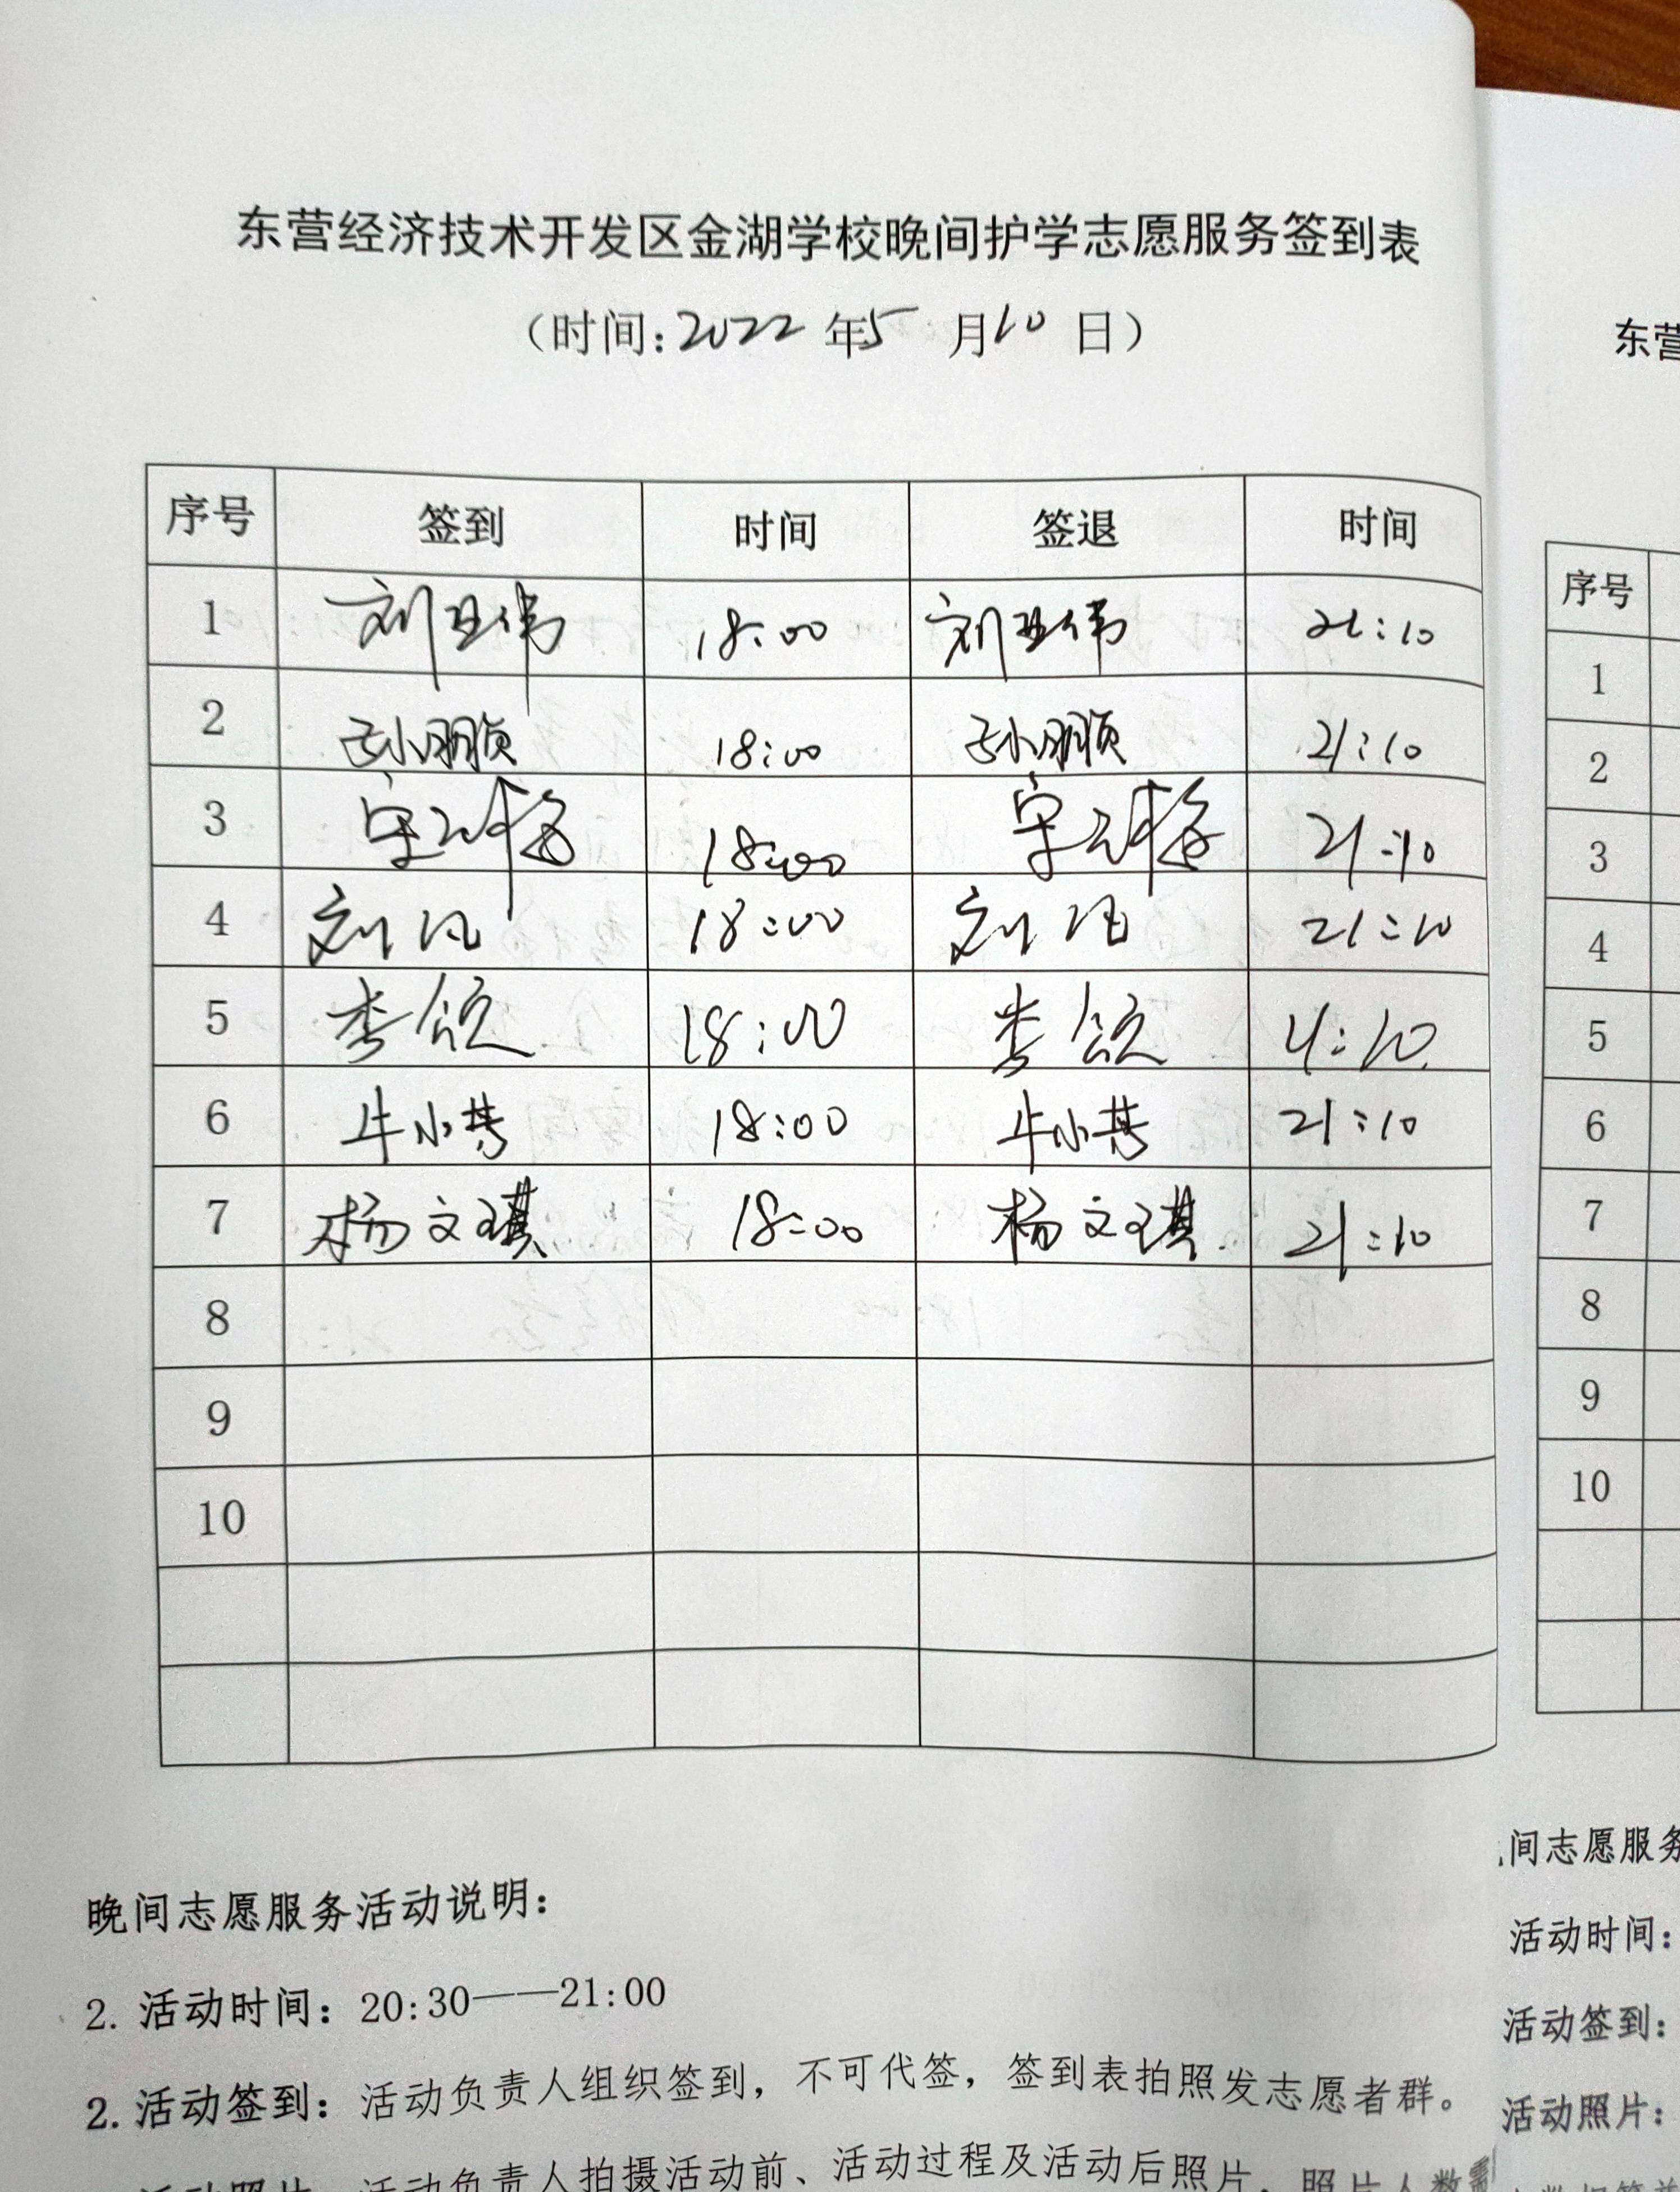 东营经济技术开发区金湖学校晚间护学志愿服务签到表
（时间：2022 年5 月10 日）
序号 签到 时间 签退 时间
1 刘卫伟 18:00 刘卫伟 21:10
2 孙鹏顺 18:00 孙鹏顺 21:10
3 18:00 21:10
4 刘凡 18:00 刘凡 21:10
5 李颂 18:00 李颂 21:10
6 牛小芸 18:00 牛小芸 21:10
7 杨文琪 18:00 杨文琪 21:10
8
9
10
晚间志愿服务活动说明：
2. 活动时间：20:30——21:00
2. 活动签到：活动负责人组织签到，不可代签，签到表拍照发志愿者群。
活动照片 活动负责人拍摄活动前、活动过程及活动后照片，照片人数
东营
序号
1
2
3
4
5
6
7
8
9
10
间志愿服务
活动时间：
活动签到：
活动照片：